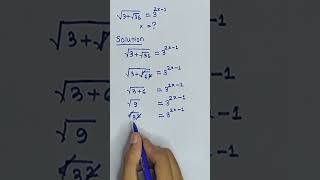 √3+√36 = 3^2x-1
x = ?
Solution
√3+√36 = 3^2x-1
√3+√6^2 = 3^2x-1
√3+6 = 3^2x-1
√9 = 3^2x-1
√3^2 = 3^2x-1